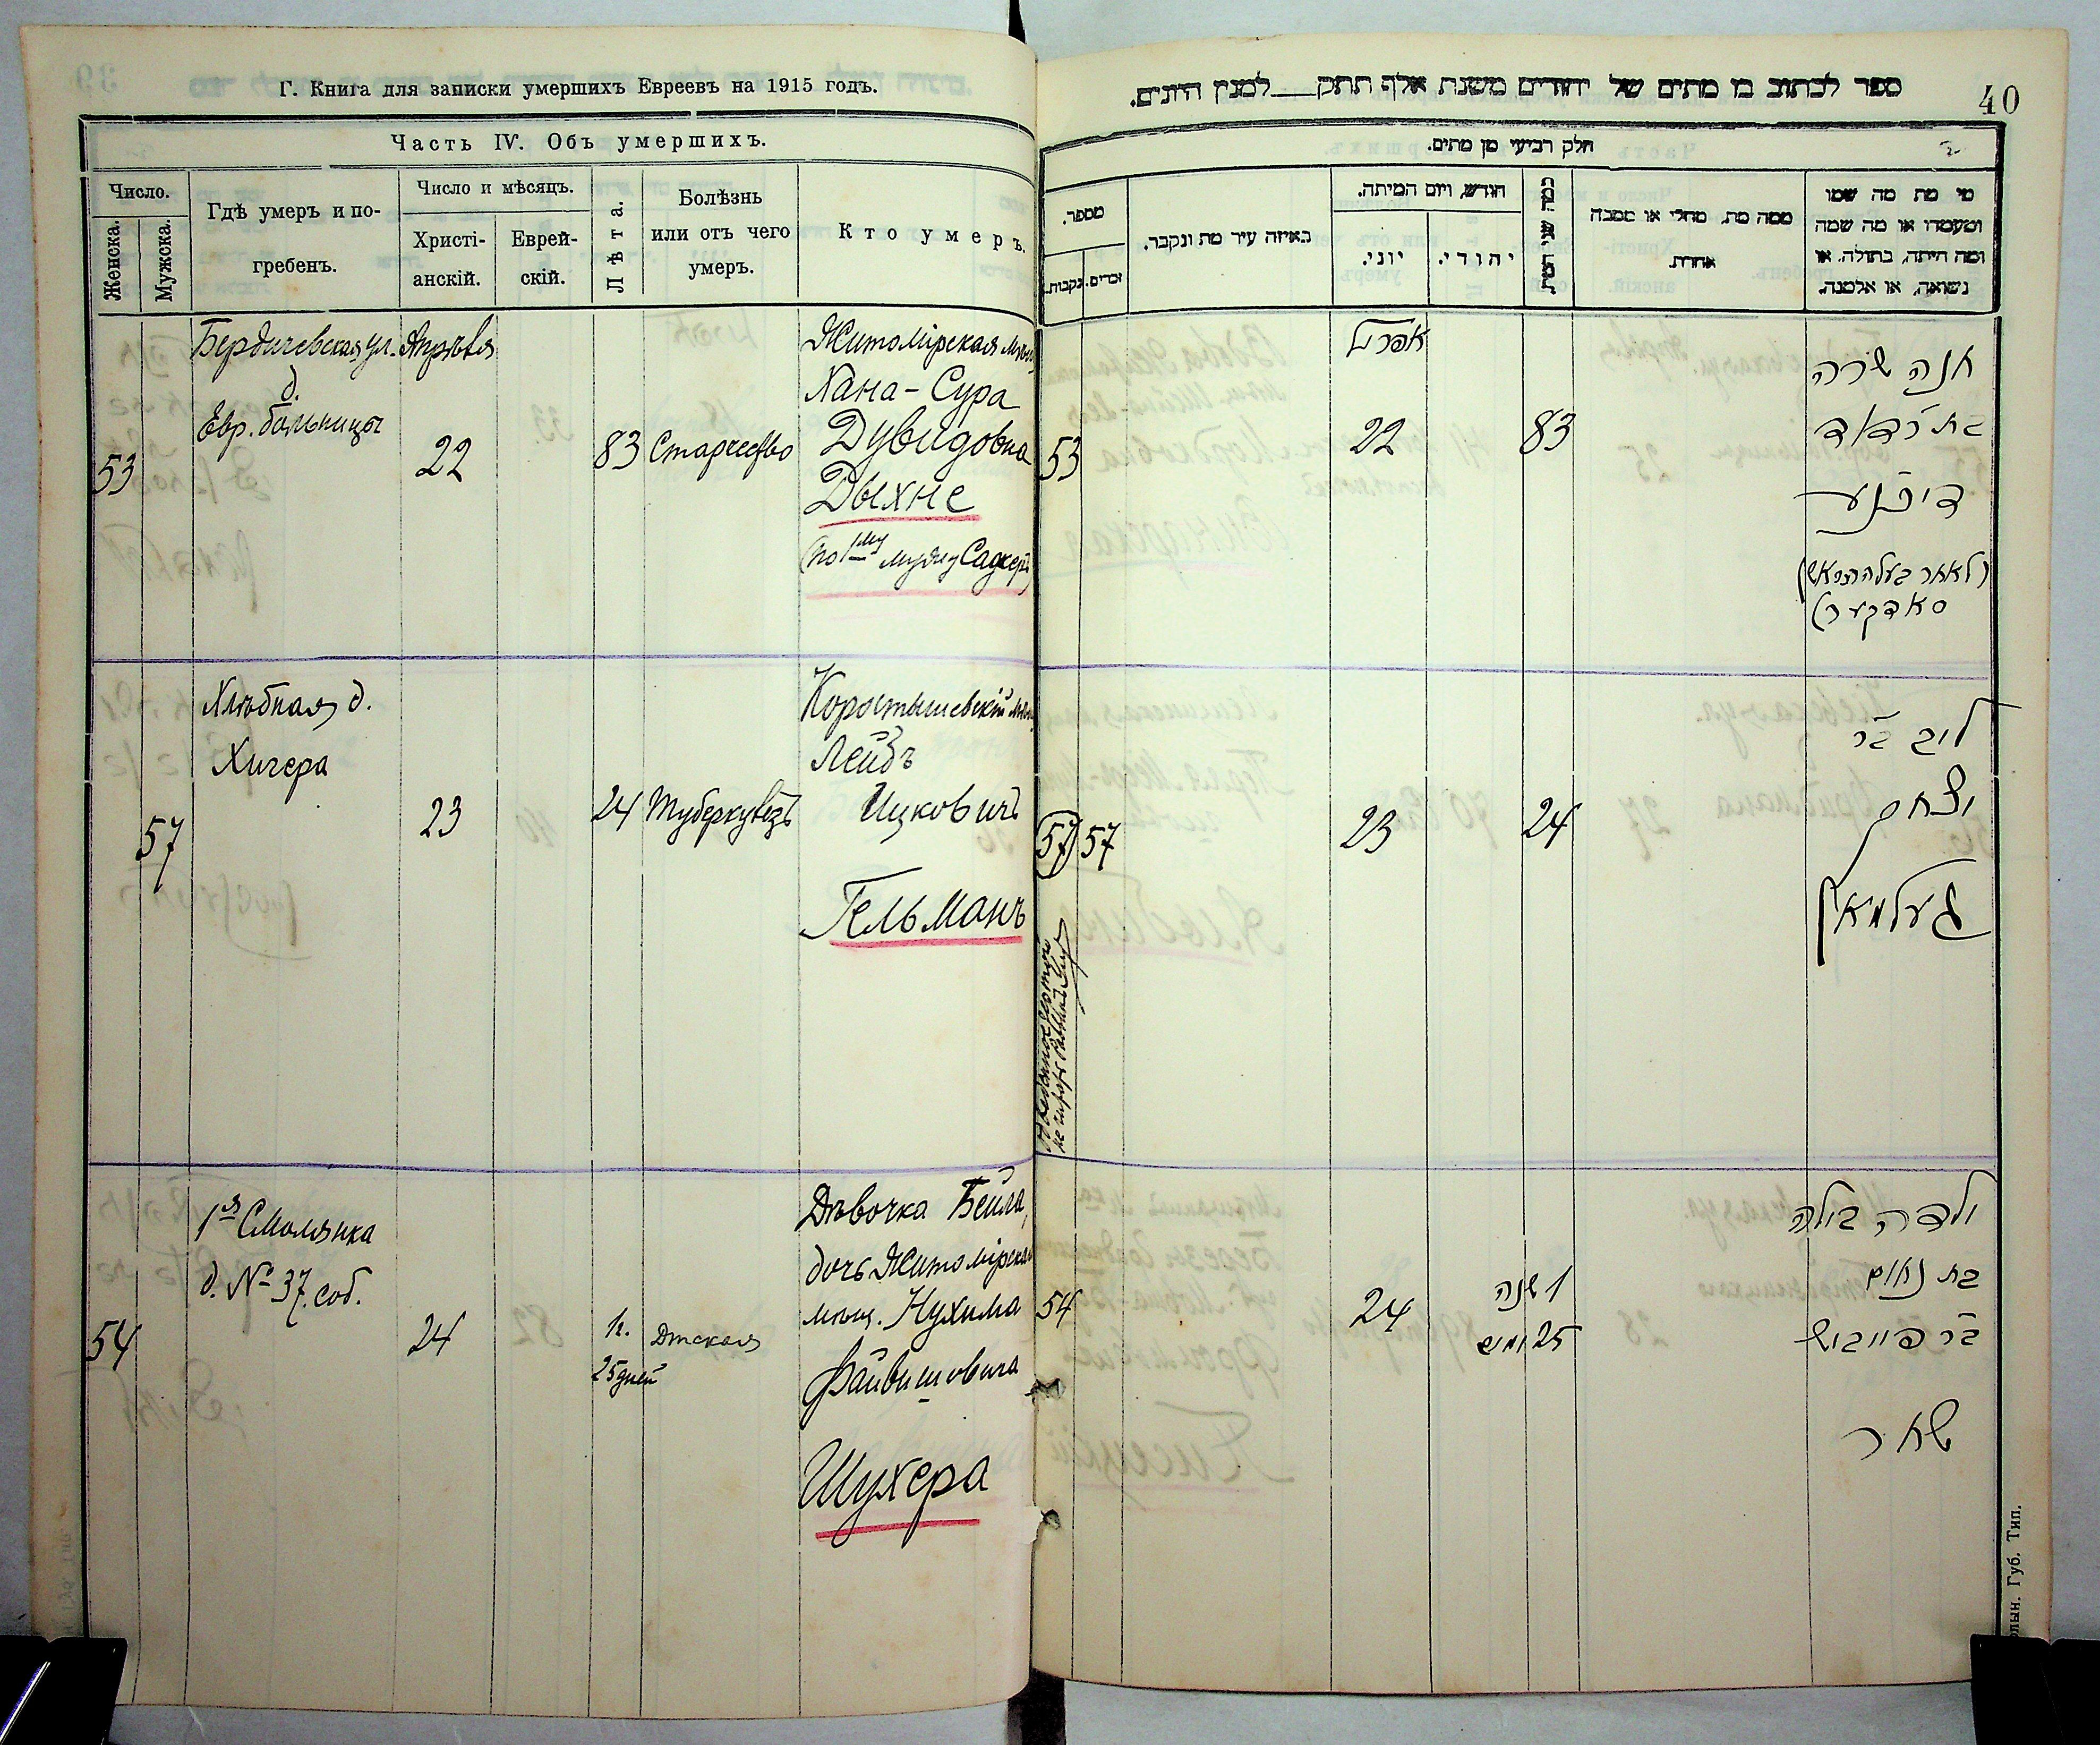 Г. Книга для записки умершихъ Евреевъ на 1915 годъ.
Часть IV. Объ умершихъ.
Число.
Женска.
Мужска.
Гдѣ умеръ и по-
гребенъ.
Число и мѣсяцъ.
Христі-
анскій.
Еврей-
скій.
Лѣта.
Болѣзнь
или отъ чего
умеръ.
Кто умеръ.
53
Бердичевская ул.
д.
Евр. больницы
Апрѣля
22
83
Старчество
Житомірская мѣщ.
Хана-Сура
Дувидовна
Дыхне
(по 1му мужу Садкеръ)
57
Хлѣбная д.
Хигера
23
24
Туберкулёзъ
Коростышевскій мѣщ.
Лейбъ
Ицковичъ
Гельманъ
54
1я Смолянка
д. № 37. соб.
24
1г.
25 дней
Дѣтская
Дѣвочка Бейла,
дочь Житомірскаго
мѣщ. Нухима
Файвишовича
Шухера
40
ספר לכתוב בו מתים של יהודים משנת אלף תתק___למנין היונים.
חלק רביעי מן מתים.
מספר.
נקבות.
זכרים.
באיזה עיר מת ונקבר.
חודש, ויום המיתה.
יוני.
יהודי.
כמה שני המת
ממה מת, מחלי או מסבה
אחרת.
מי מת מה שמו
ומעמדו או מה שמה
ומה היתה, בתולה, או
נשואה, או אלמנה.
53
אפריל
22
83
חנה שרה
בת ר דוד
דיכנע
(לאחר בעלה הראש)
סאדקער)
57
57
23
24
ליב בר
יצחק
געלמאן
54
24
1 שנה
25 ומים
ילדה בילה
בת נחום
בר פייבוש
שאר
олын. Губ. Тип.